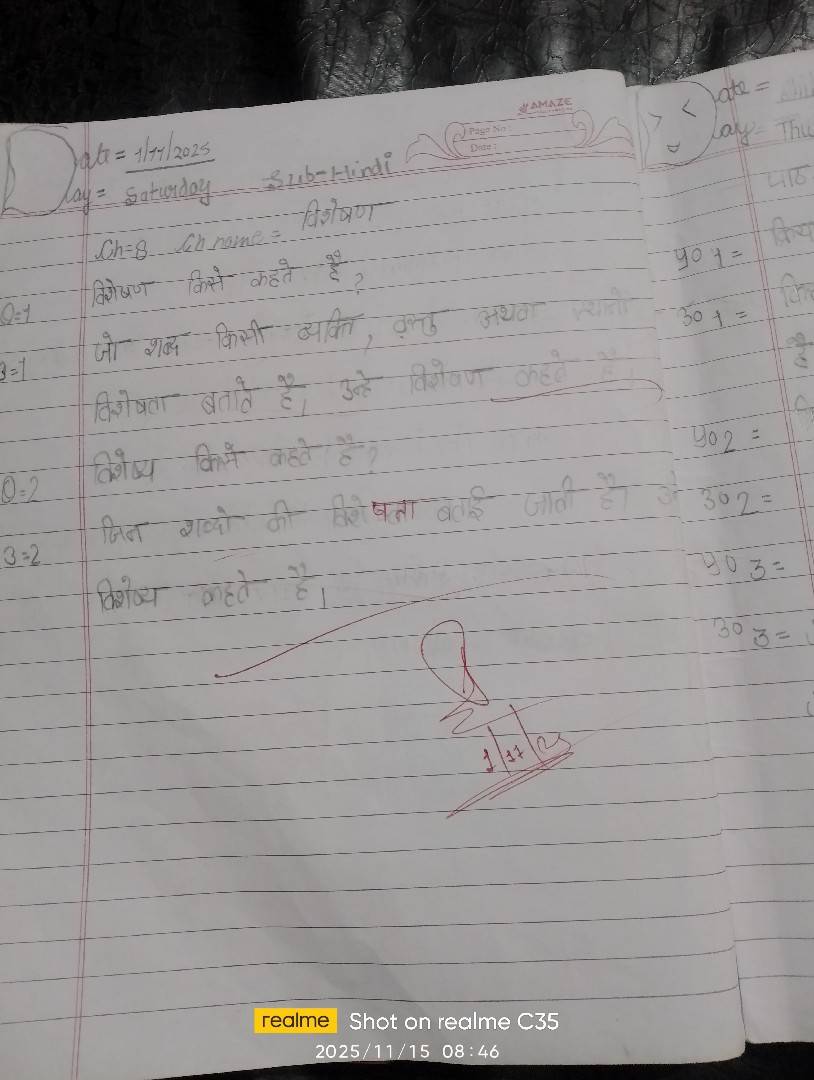 AMAZE
Page No:
Date:
Date = 1/11/2025
Day = Saturday Sub-Hindi
Ch=8 Ch name = विशेषण
Q=1 विशेषण किसे कहते है?
उ=1 जो शब्द किसी व्यक्ति, वस्तु अथवा
विशेषता बताते है, उन्हे विशेषण कहते है।
Q=2 विशेष्य किसे कहते है?
उ=2 जिन शब्दो की विशेषता बताई जाती है।
विशेष्य कहते है।
1/11/25
Date =
Day = Thu
पाठ
प्र01=
उ01=
है
प्र02=
उ02=
प्र03=
उ03=
realme Shot on realme C35
2025/11/15 08:46